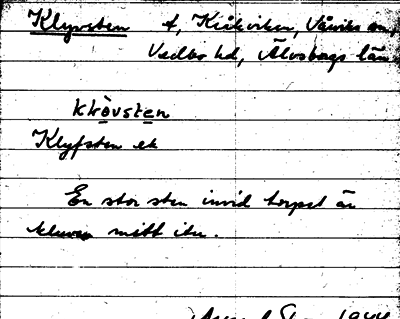 Klyvsten t, Kråkviken, Vårviks sn,
Vedbo hd, Älvsborgs län.
kḷø̀vstɛn
Klyfsten ek
En stor sten invid torpet är
kluven mitt itu.
1944